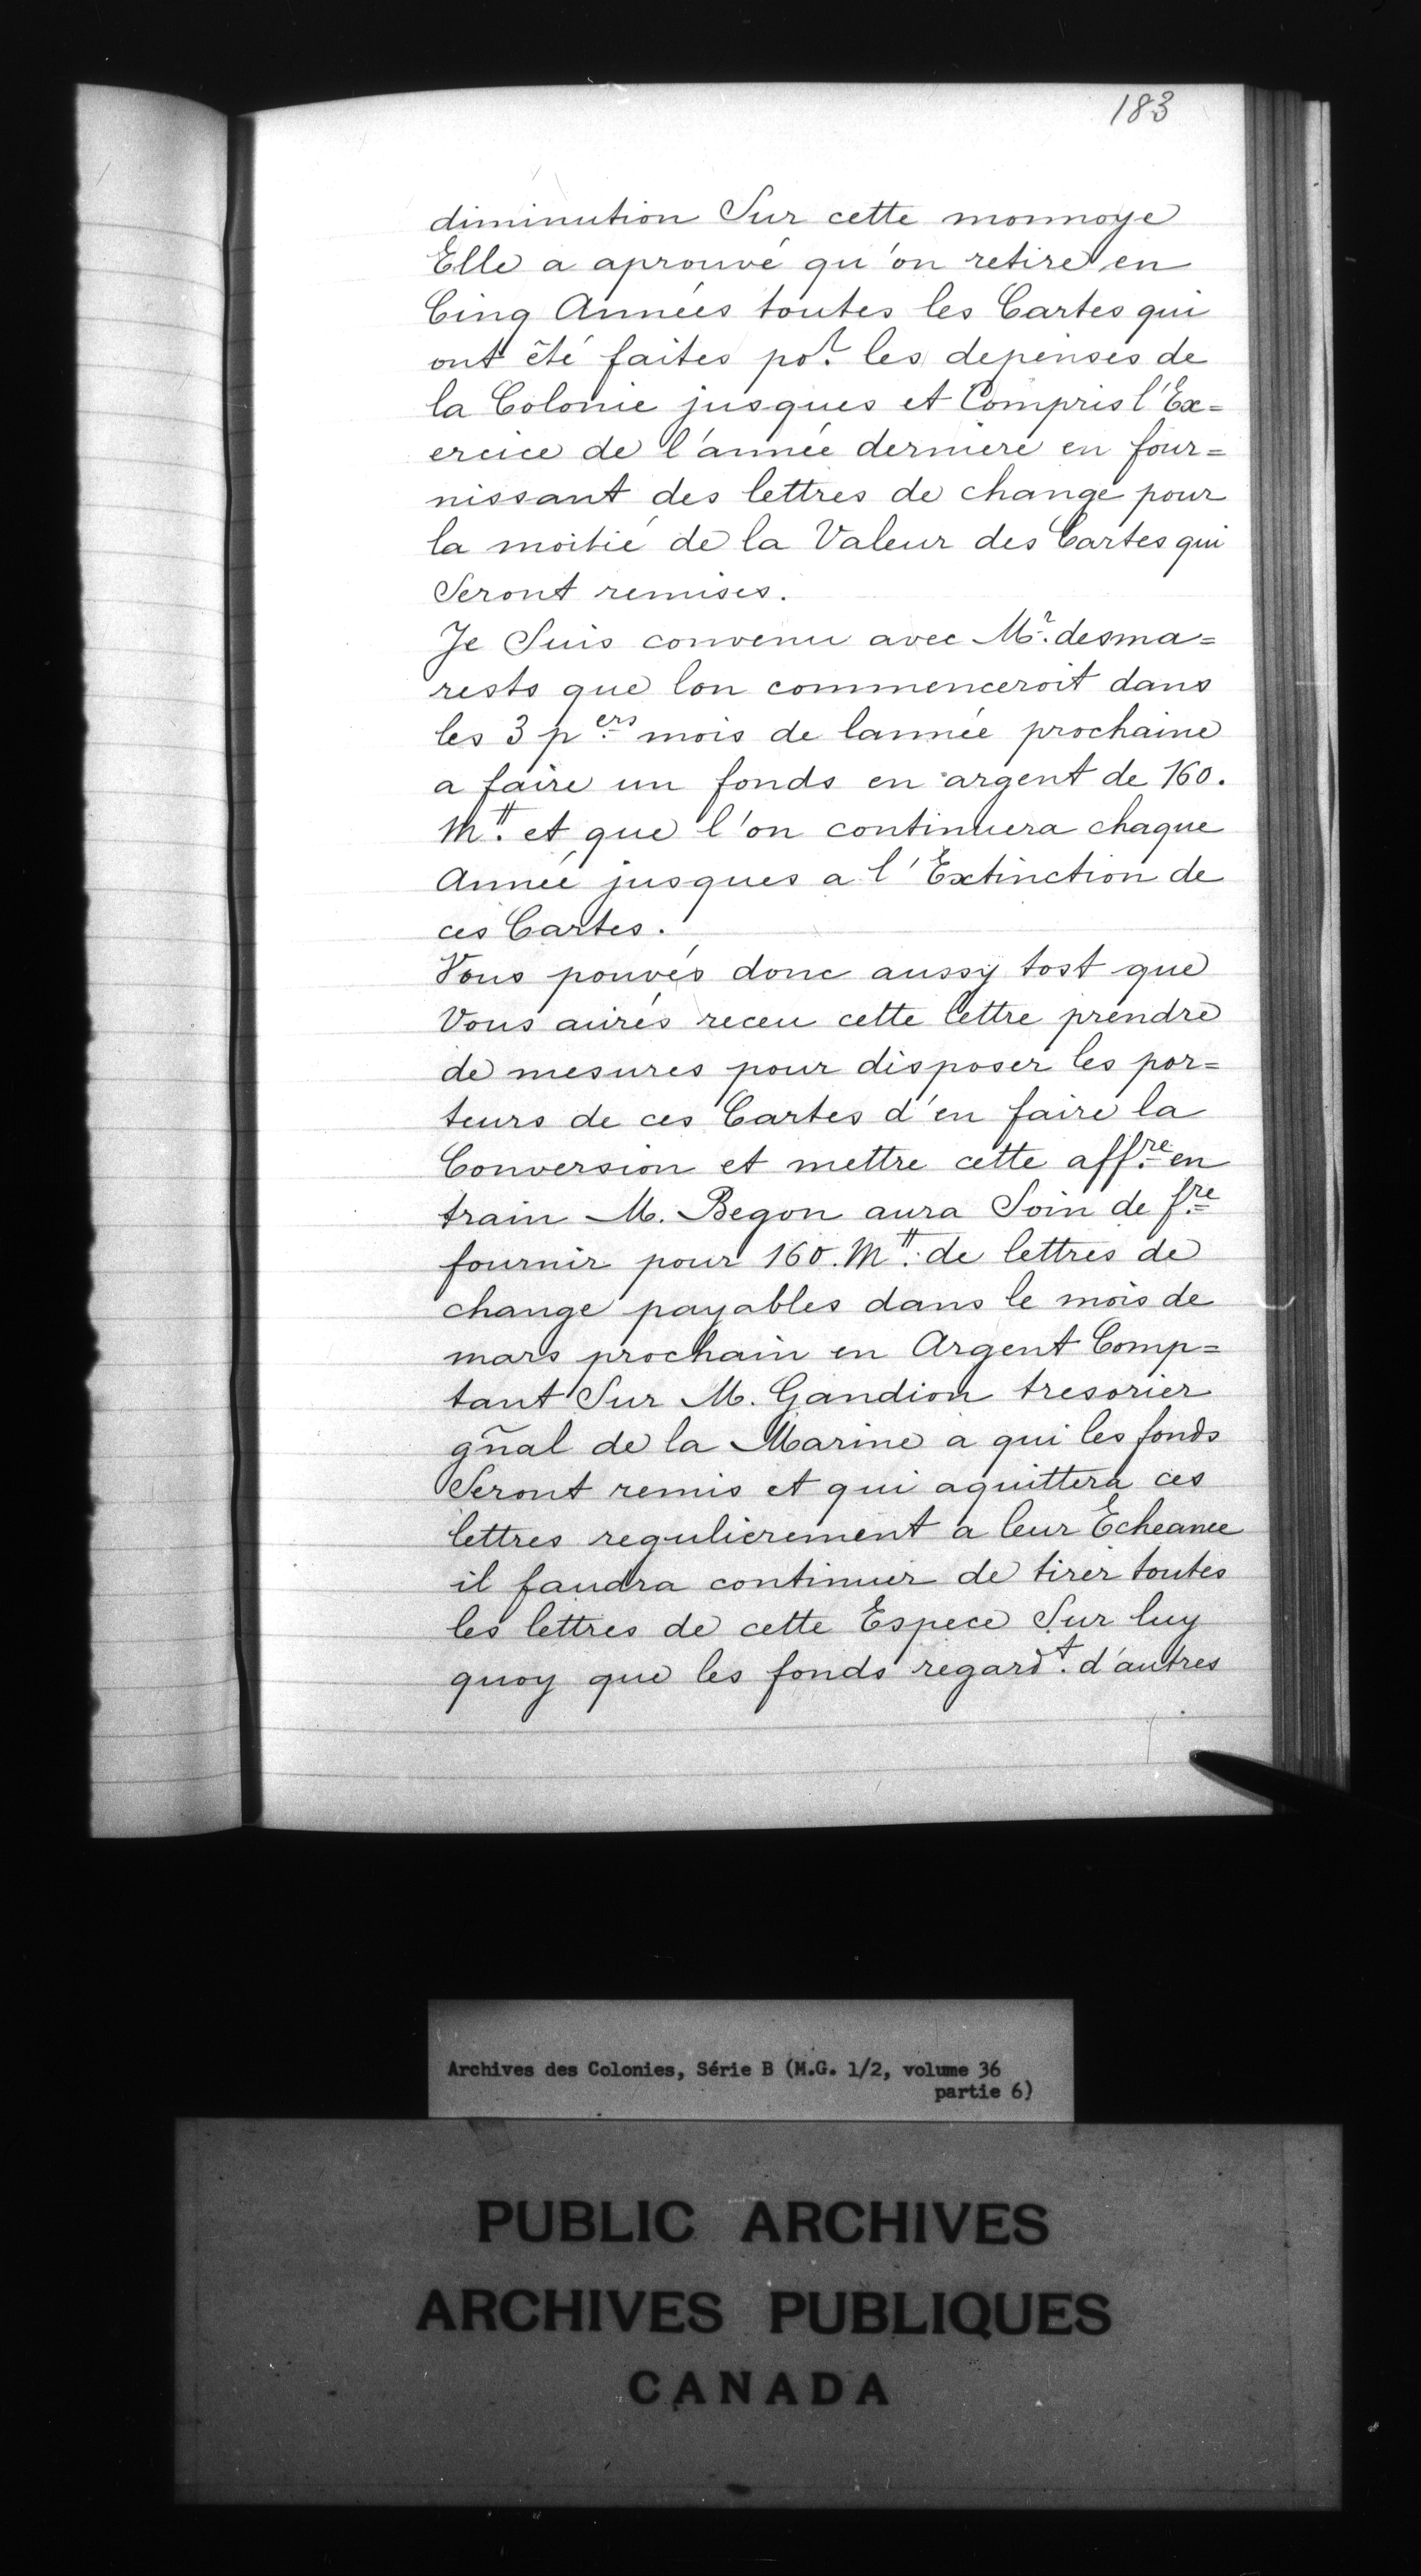 183
diminution Sur cette monnoye
Elle a aprouvé qu'on retire en
Cinq Années toutes les Cartes qui
ont été faites po.r les depenses de
la Colonie jusques et Compris l'Ex=
ercice de l'année derniere en four=
nissant des lettres de change pour
la moitié de la Valeur des Cartes qui
Seront remises.
Je Suis convenu avec M.r desma=
rests que lon commenceroit dans
les 3 p.ers mois de lannée prochaine
a faire un fonds en argent de 160.
M.₶ et que l'on continuera chaque
Année jusques a l'Extinction de
ces Cartes.
Vous pouvés donc aussy tost que
Vous aurés receu cette lettre prendre
de mesures pour disposer les por=
teurs de ces Cartes d'en faire la
Conversion et mettre cette aff.re en
train M. Begon aura Soin de f.re
fournir pour 160. M.₶ de lettres de
change payables dans le mois de
mars prochain en Argent Comp=
tant Sur M. Gandion tresorier
gñal de la Marine a qui les fonds
Seront remis et qui aquittera ces
lettres regulierement a leur Echeance
il faudra continuer de tirer toutes
les lettres de cette Espece Sur luy
quoy que les fonds regard.t d'autres
Archives des Colonies, Série B (M.G. 1/2, volume 36
partie 6)
PUBLIC ARCHIVES
ARCHIVES PUBLIQUES
CANADA